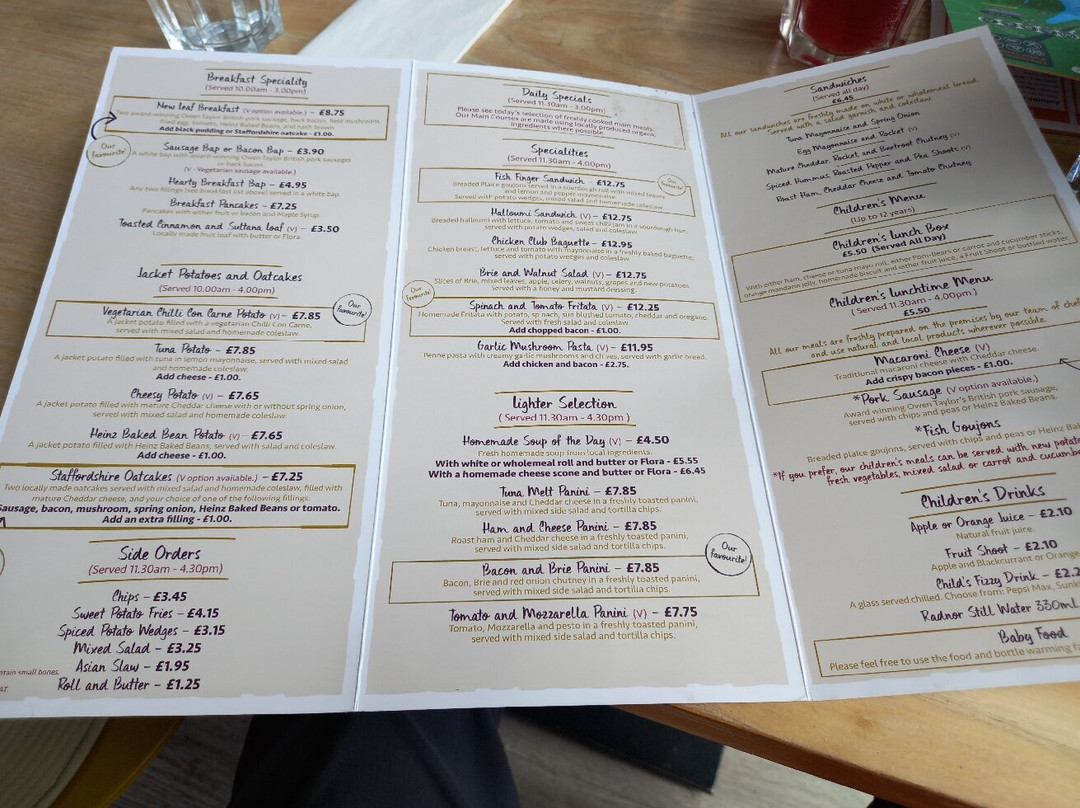 Breakfast Speciality
(Served 10.00am - 3.00pm)
New leaf Breakfast (V option available.) - £8.75
Two award-winning Owen Taylor British pork sausage, back bacon, field mushroom,
fried egg, tomato, Heinz Baked Beans, and hash brown
Add black pudding or Staffordshire oatcake - £1.00.
Our
favourite!
Sausage Bap or Bacon Bap - £3.90
A white bap with award-winning Owen Taylor British pork sausages
or back bacon.
(V - Vegetarian sausage available.)
Hearty Breakfast Bap - £4.95
Any two fillings (see breakfast list above) served in a white bap.
Breakfast Pancakes - £7.25
Pancakes with either fruit or bacon and Maple Syrup.
Toasted Cinnamon and Sultana loaf (V) - £3.50
Locally made fruit loaf with butter or Flora.
Jacket Potatoes and Oatcakes
(Served 10.00am - 4.00pm)
Our
favourite!
Vegetarian Chilli Con Carne Potato (V) - £7.85
A jacket potato filled with a vegetarian Chilli Con Carne,
served with mixed salad and homemade coleslaw.
Tuna Potato - £7.85
A jacket potato filled with tuna in lemon mayonnaise, served with mixed salad
and homemade coleslaw.
Add cheese - £1.00.
Cheesy Potato (V) - £7.65
A jacket potato filled with mature Cheddar cheese with or without spring onion,
served with mixed salad and homemade coleslaw.
Heinz Baked Bean Potato (V) - £7.65
A jacket potato filled with Heinz Baked Beans, served with salad and coleslaw.
Add cheese - £1.00.
Staffordshire Oatcakes (V option available.) - £7.25
Two locally made oatcakes served with mixed salad and homemade coleslaw, filled with
mature Cheddar cheese, and your choice of one of the following fillings:
Sausage, bacon, mushroom, spring onion, Heinz Baked Beans or tomato.
Add an extra filling - £1.00.
Side Orders
(Served 11.30am - 4.30pm)
Chips - £3.45
Sweet Potato Fries - £4.15
Spiced Potato Wedges - £3.15
Mixed Salad - £3.25
Asian Slaw - £1.95
Roll and Butter - £1.25
small bones.
Daily Specials
(Served 11.30am - 3.00pm)
Please see today's selection of freshly cooked main meals.
Our Main Courses are made using locally produced
ingredients where possible.
Specialities
(Served 11.30am - 4.00pm)
Our
favourite!
Fish Finger Sandwich - £12.75
Breaded Plaice goujons served in a sourdough roll with mixed leaves
and lemon and pepper mayonnaise.
Served with potato wedges, mixed salad and homemade coleslaw.
Halloumi Sandwich (V) - £12.75
Breaded halloumi with lettuce, tomato and sweet chilli jam in a sourdough bun,
served with potato wedges, salad and coleslaw.
Chicken Club Baguette - £12.95
Chicken breast, lettuce and tomato with mayonnaise in a freshly baked baguette,
served with potato wedges and coleslaw.
Brie and Walnut Salad (V) - £12.75
Slices of Brie, mixed leaves, apple, celery, walnuts, grapes and new potatoes.
Served with a honey and mustard dressing.
Our
favourite!
Spinach and Tomato Fritata (V) - £12.25
Homemade Fritata with potato, spinach, sun blushed tomato, cheddar and oregano.
Served with fresh salad and coleslaw
Add chopped bacon - £1.00.
Garlic Mushroom Pasta (V) - £11.95
Penne pasta with creamy garlic mushrooms and chives, served with garlic bread.
Add chicken and bacon - £2.75.
Lighter Selection
(Served 11.30am - 4.30pm)
Homemade Soup of the Day (V) - £4.50
Fresh homemade soup from local ingredients.
With white or wholemeal roll and butter or Flora - £5.55
With a homemade cheese scone and butter or Flora - £6.45
Tuna Melt Panini - £7.85
Tuna, mayonnaise and Cheddar cheese in a freshly toasted panini,
served with mixed side salad and tortilla chips.
Ham and Cheese Panini - £7.85
Roast ham and Cheddar cheese in a freshly toasted panini,
served with mixed side salad and tortilla chips.
Our
favourite!
Bacon and Brie Panini - £7.85
Bacon, Brie and red onion chutney in a freshly toasted panini,
served with mixed side salad and tortilla chips.
Tomato and Mozzarella Panini (V) - £7.75
Tomato, Mozzarella and pesto in a freshly toasted panini,
served with mixed side salad and tortilla chips.
Sandwiches
(Served all day)
£6.45
All our sandwiches are freshly made on white or wholemeal bread.
Served with a salad garnish and coleslaw.
Tuna Mayonnaise and Spring Onion
Egg Mayonnaise and Rocket (V)
Mature Cheddar, Rocket, and Beetroot Chutney (V)
Spiced Hummus, Roasted Pepper and Pea Shoots (V)
Roast Ham, Cheddar Cheese and Tomato Chutney
Children's Menu
(Up to 12 years)
Children's Lunch Box
£5.50 (Served All Day)
With either ham, cheese or tuna mayo roll, either Pom-Bears or carrot and cucumber sticks,
orange mandarin jelly, homemade biscuit and either fruit juice, a Fruit Shoot or bottled water
Children's Lunchtime Menu
(Served 11.30am - 4.00pm)
£5.50
All our meals are freshly prepared on the premises by our team of
and use natural and local products wherever possible.
Macaroni Cheese (V)
Traditional macaroni cheese with Cheddar cheese
Add crispy bacon pieces - £1.00.
*Pork Sausage (V option available.)
Award winning Owen Taylor's British pork sausage,
served with chips and peas or Heinz Baked Beans.
*Fish Goujons
Breaded plaice goujons, served with chips and peas or Heinz
*If you prefer, our children's meals can be served with new
fresh vegetables, mixed salad or carrot and
Children's Drinks
Apple or Orange Juice - £2.10
Natural fruit juice.
Fruit Shoot - £2.10
Apple and Blackcurrant or Orange
Child's Fizzy Drink -
A glass served chilled. Choose from: Pepsi Max,
Radnor Still Water 330ml
Baby Food
Please feel free to use the food and bottle warming